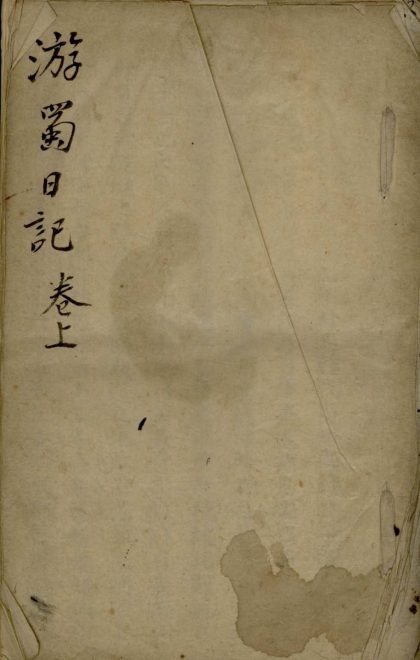 游蜀日記卷上